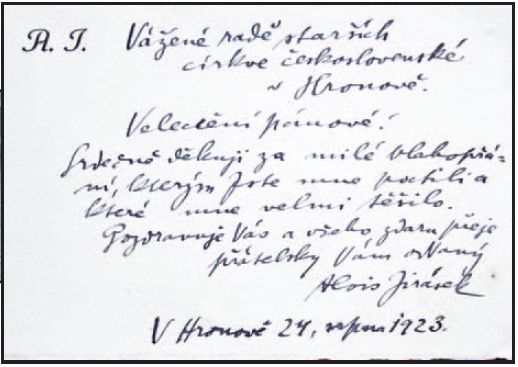 A. J. Vážené radě starších
církve československé
v Hronově.
Velectění pánové!
Srdečně děkuji za milé blahopřá-
ní, kterým jste mne poctili a
které mne velmi těšilo.
Pozdravuje Vás a všeho zdaru přeje
přátelsky Vám oddaný
Alois Jirásek
V Hronově 24. srpna 1923.